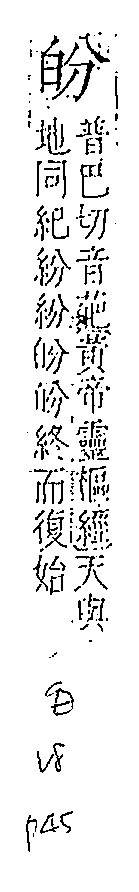 ⿰白分
普巴切音葩黃帝靈樞經天與
地同紀紛紛⿰白分⿰白分終而復始
p45